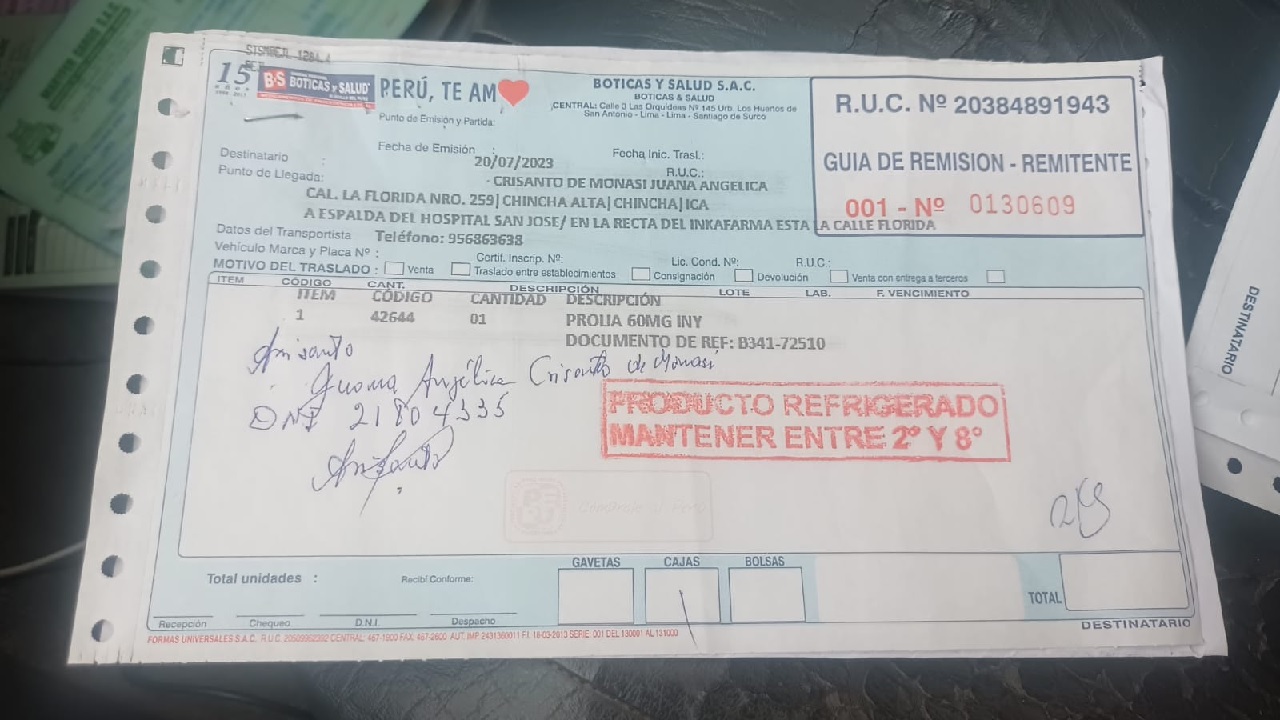 15
B·S BOTICAS Y SALUD
PERÚ, TE AM
BOTICAS Y SALUD S.A.C.
BOTICAS & SALUD
CENTRAL: Calle 3 Las Orquídeas Nº 145 Urb. Los Huertos de
San Antonio - Lima - Lima - Santiago de Surco
R.U.C. Nº 20384891943
GUIA DE REMISION - REMITENTE
001 - Nº 0130609
Punto de Emisión y Partida:
Fecha de Emisión : 20/07/2023 Fecha Inic. Trasl.:
Destinatario : R.U.C.:
- CRISANTO DE MONASI JUANA ANGELICA
Punto de Llegada:
CAL. LA FLORIDA NRO. 259| CHINCHA ALTA| CHINCHA| ICA
A ESPALDA DEL HOSPITAL SAN JOSE/ EN LA RECTA DEL INKAFARMA ESTA LA CALLE FLORIDA
Datos del Transportista : Teléfono: 956863638
Vehículo Marca y Placa Nº : Certif. Inscrip. Nº Lic. Cond. Nº: R.U.C.:
MOTIVO DEL TRASLADO : Venta Traslado entre establecimientos Consignación Devolución Venta con entrega a terceros
ITEM CÓDIGO CANT. DESCRIPCIÓN LOTE LAB. F. VENCIMIENTO
ITEM CÓDIGO CANTIDAD DESCRIPCIÓN
1 42644 01 PROLIA 60MG INY
DOCUMENTO DE REF: B341-72510
Juana Angélica Crisanto de Monasí
DNI 21804335
PRODUCTO REFRIGERADO
MANTENER ENTRE 2º Y 8º
GAVETAS CAJAS BOLSAS
Total unidades : Recibí Conforme:
TOTAL
Recepción Chequeo D.N.I. Despacho
DESTINATARIO
FORMAS UNIVERSALES S.A.C.
DESTINATARIO